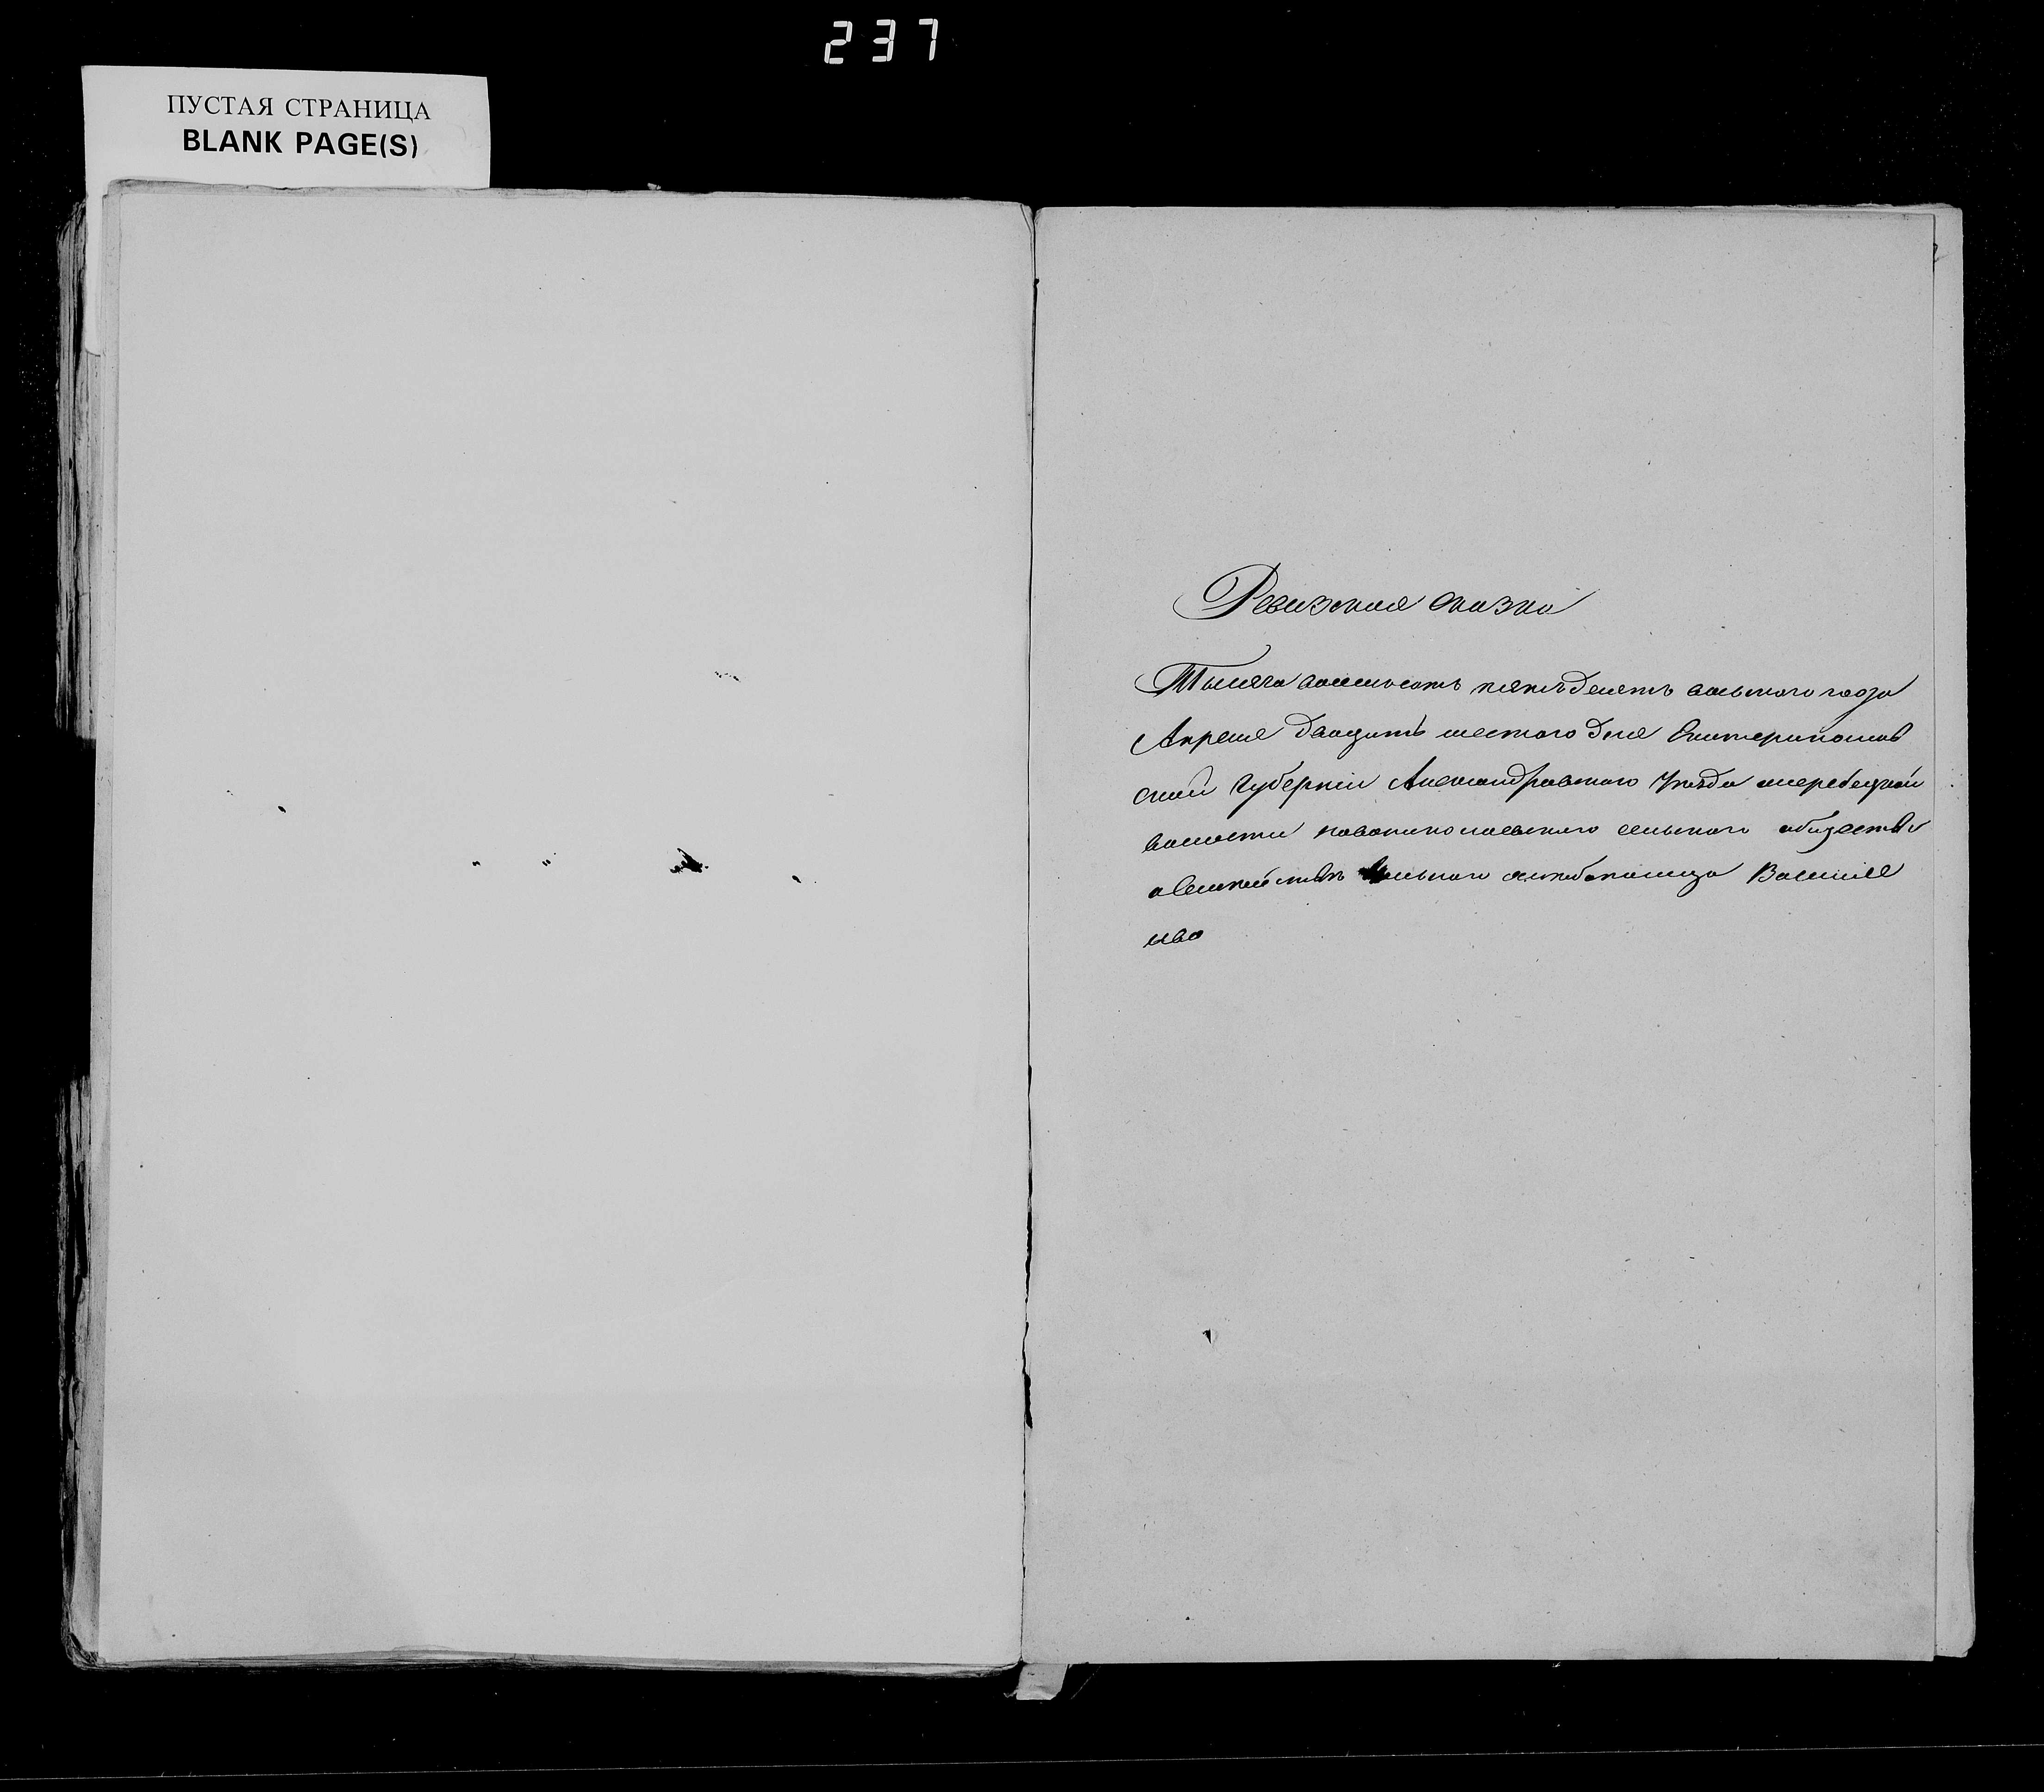 237
ПУСТАЯ СТРАНИЦА
BLANK PAGE(S)
Ревизская сказка
Тысяча восемьсотъ пятьдесятъ восьмого года
Апреля двадцать шестого дня Екатеринослав
ской Губерніи Александравского Уезда жеребецкой
волости новониколаевского сельского общества
Васильев